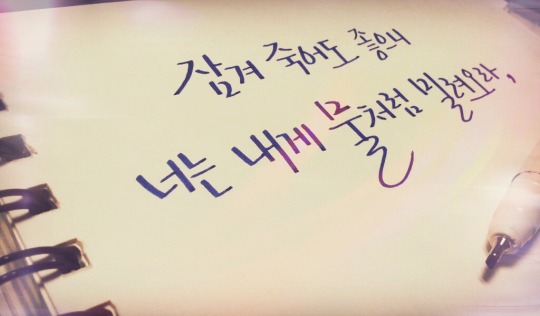 잠겨 죽어도 좋으니
너는 내게 물처럼 밀려오라,